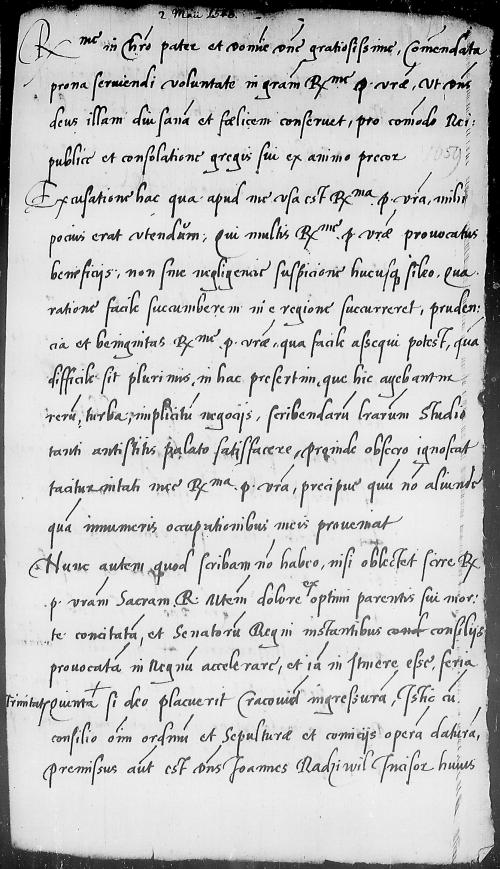 2 Maii 1548.
Rx me in chro pater et domine dne gratiosissime, Comendata
prona seruiendi voluntate in gram Rx me p. vrae, vt dns
deus illam diu sanā et foelicem conseruet, pro comodo Rei:
publice et consolatione gregis sui ex animo precor
1059
Excusatione hac qua apud me vsa est Rx ma. p. vra, mihi
pocius erat vtendum, Qui multis Rx me. p. vrae prouocatus
beneficijs, non sine negligencie suspicione hucusq sileo, Qua
ratione facile succumberem ni e regione succurreret, pruden:
cia et benignitas Rx me. p. vrae, qua facile assequi potest, quā
difficile sit plurimis, in hac presertim, que hic agebantur
rerū, turba, implicitū negocijs, scribendarū lrarum studio
tanti antistitis palato satisfacere, Proinde obsecro ignoscat
taciturnitati mee Rx ma. p. vra, precipue quū nō aliunde
quā innumeris occupationibus meis proueniat
Nunc autem quod scribam nō habeo, nisi oblectet scire Rx
p. vram Sacram. R. Mtem dolore ex optimi parentis sui mor:
te concitatā, et Senatorū Regni instantibus consilijs
prouocatā in Regnū accelerare, et iā in Itinere esse, feria
Trinitatis Quinta si deo placuerit Cracouiā ingressurā, Istic cū
consilio oīm ordinū et Sepulturae et comicijs operā daturā,
Premissus aut est dns Joannes Radziwil Incisor huius